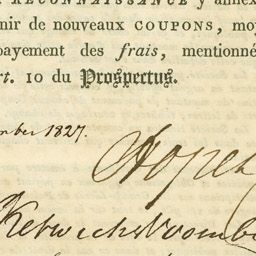 RECONNAISSANCE y annex
nir de nouveaux COUPONS, moy
payement des frais, mentionné
rt. 10 du Prospectus.
mber 1827.
Hope
Ketwich & Voomb